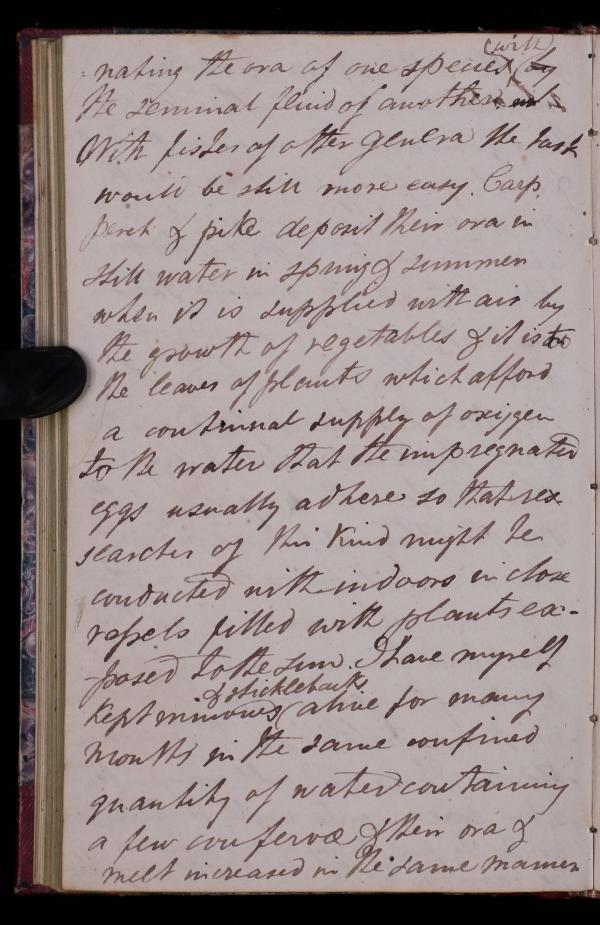 (with)
-nating the ova of one species (by
the seminal fluid of another.
With fishes of other genera the task
would be still more easy. Carp,
perch & pike deposit their ova in
still water in spring & summer
when it is supplied with air by
the growth of vegetables & it is to
the leaves of plants which afford
a continual supply of oxigen
to the water that the impregnated
eggs usually adhere so that re-
searches of this kind might be
conducted with indoors in close
vessels filled with plants ex-
-posed to the sun. I have myself
& sticklebacks
kept minows (alive for many
months in the same confined
quantity of water containing
a few confervæ & their ova &
melt increased in the same manner